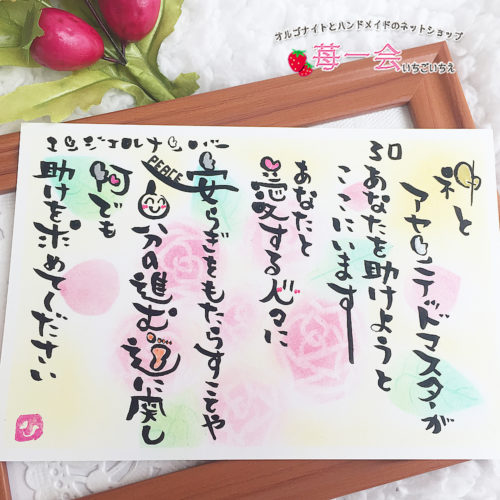 オルゴナイトとハンドメイドのネットショップ
苺一会
いちごいちえ
エンジェルナンバー
30
神と
アセンデッドマスターが
あなたを助けようと
ここにいます
あなたと
愛する人々に
安らぎをもたらすことや
PEACE
自分の進む道に関し
何でも
助けを求めてください